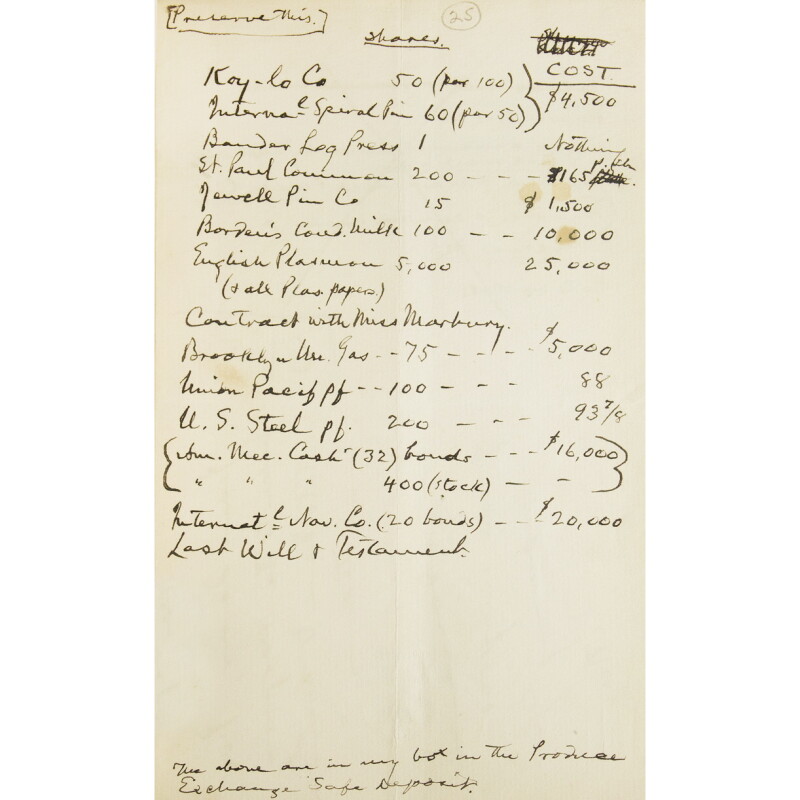 [Preserve this.]
25
Shares.
COST.
Koy-lo Co 50 (par 100)
$4,500
Internat'l Spiral Pin 60 (par 50)
Bandar Log Press 1 Nothing
St. Paul Common 200 - - - 165
Jewell Pin Co 15 $1,500
Borden's Cond. Milk 100 - - 10,000
English Plasmon 5,000 25,000
(& all Plas. papers.)
Contract with Miss Marbury.
Brooklyn Un. Gas - - 75 - - - $5,000
Union Pacif pf - - 100 - - - 88
U. S. Steel pf. 200 - - - 93 7/8
Am. Mec. Cash (32) bonds - - - $16,000
" " " 400 (stock) - -
Internat'l Nav. Co. (20 bonds) - - $20,000
Last Will & Testament.
The above are in my box in the Produce
Exchange Safe Deposit.